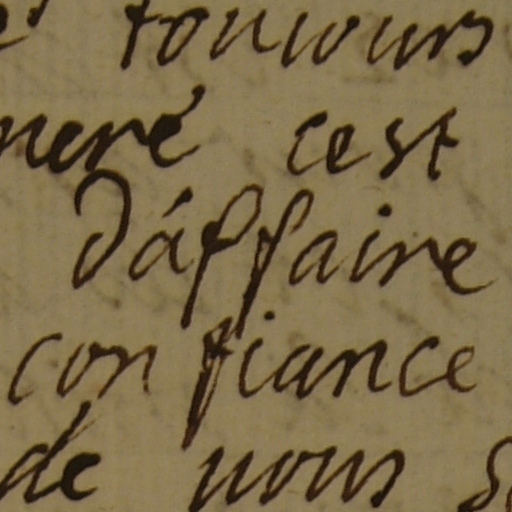 toujours
neré cest
dáffaire
confiance
de nous